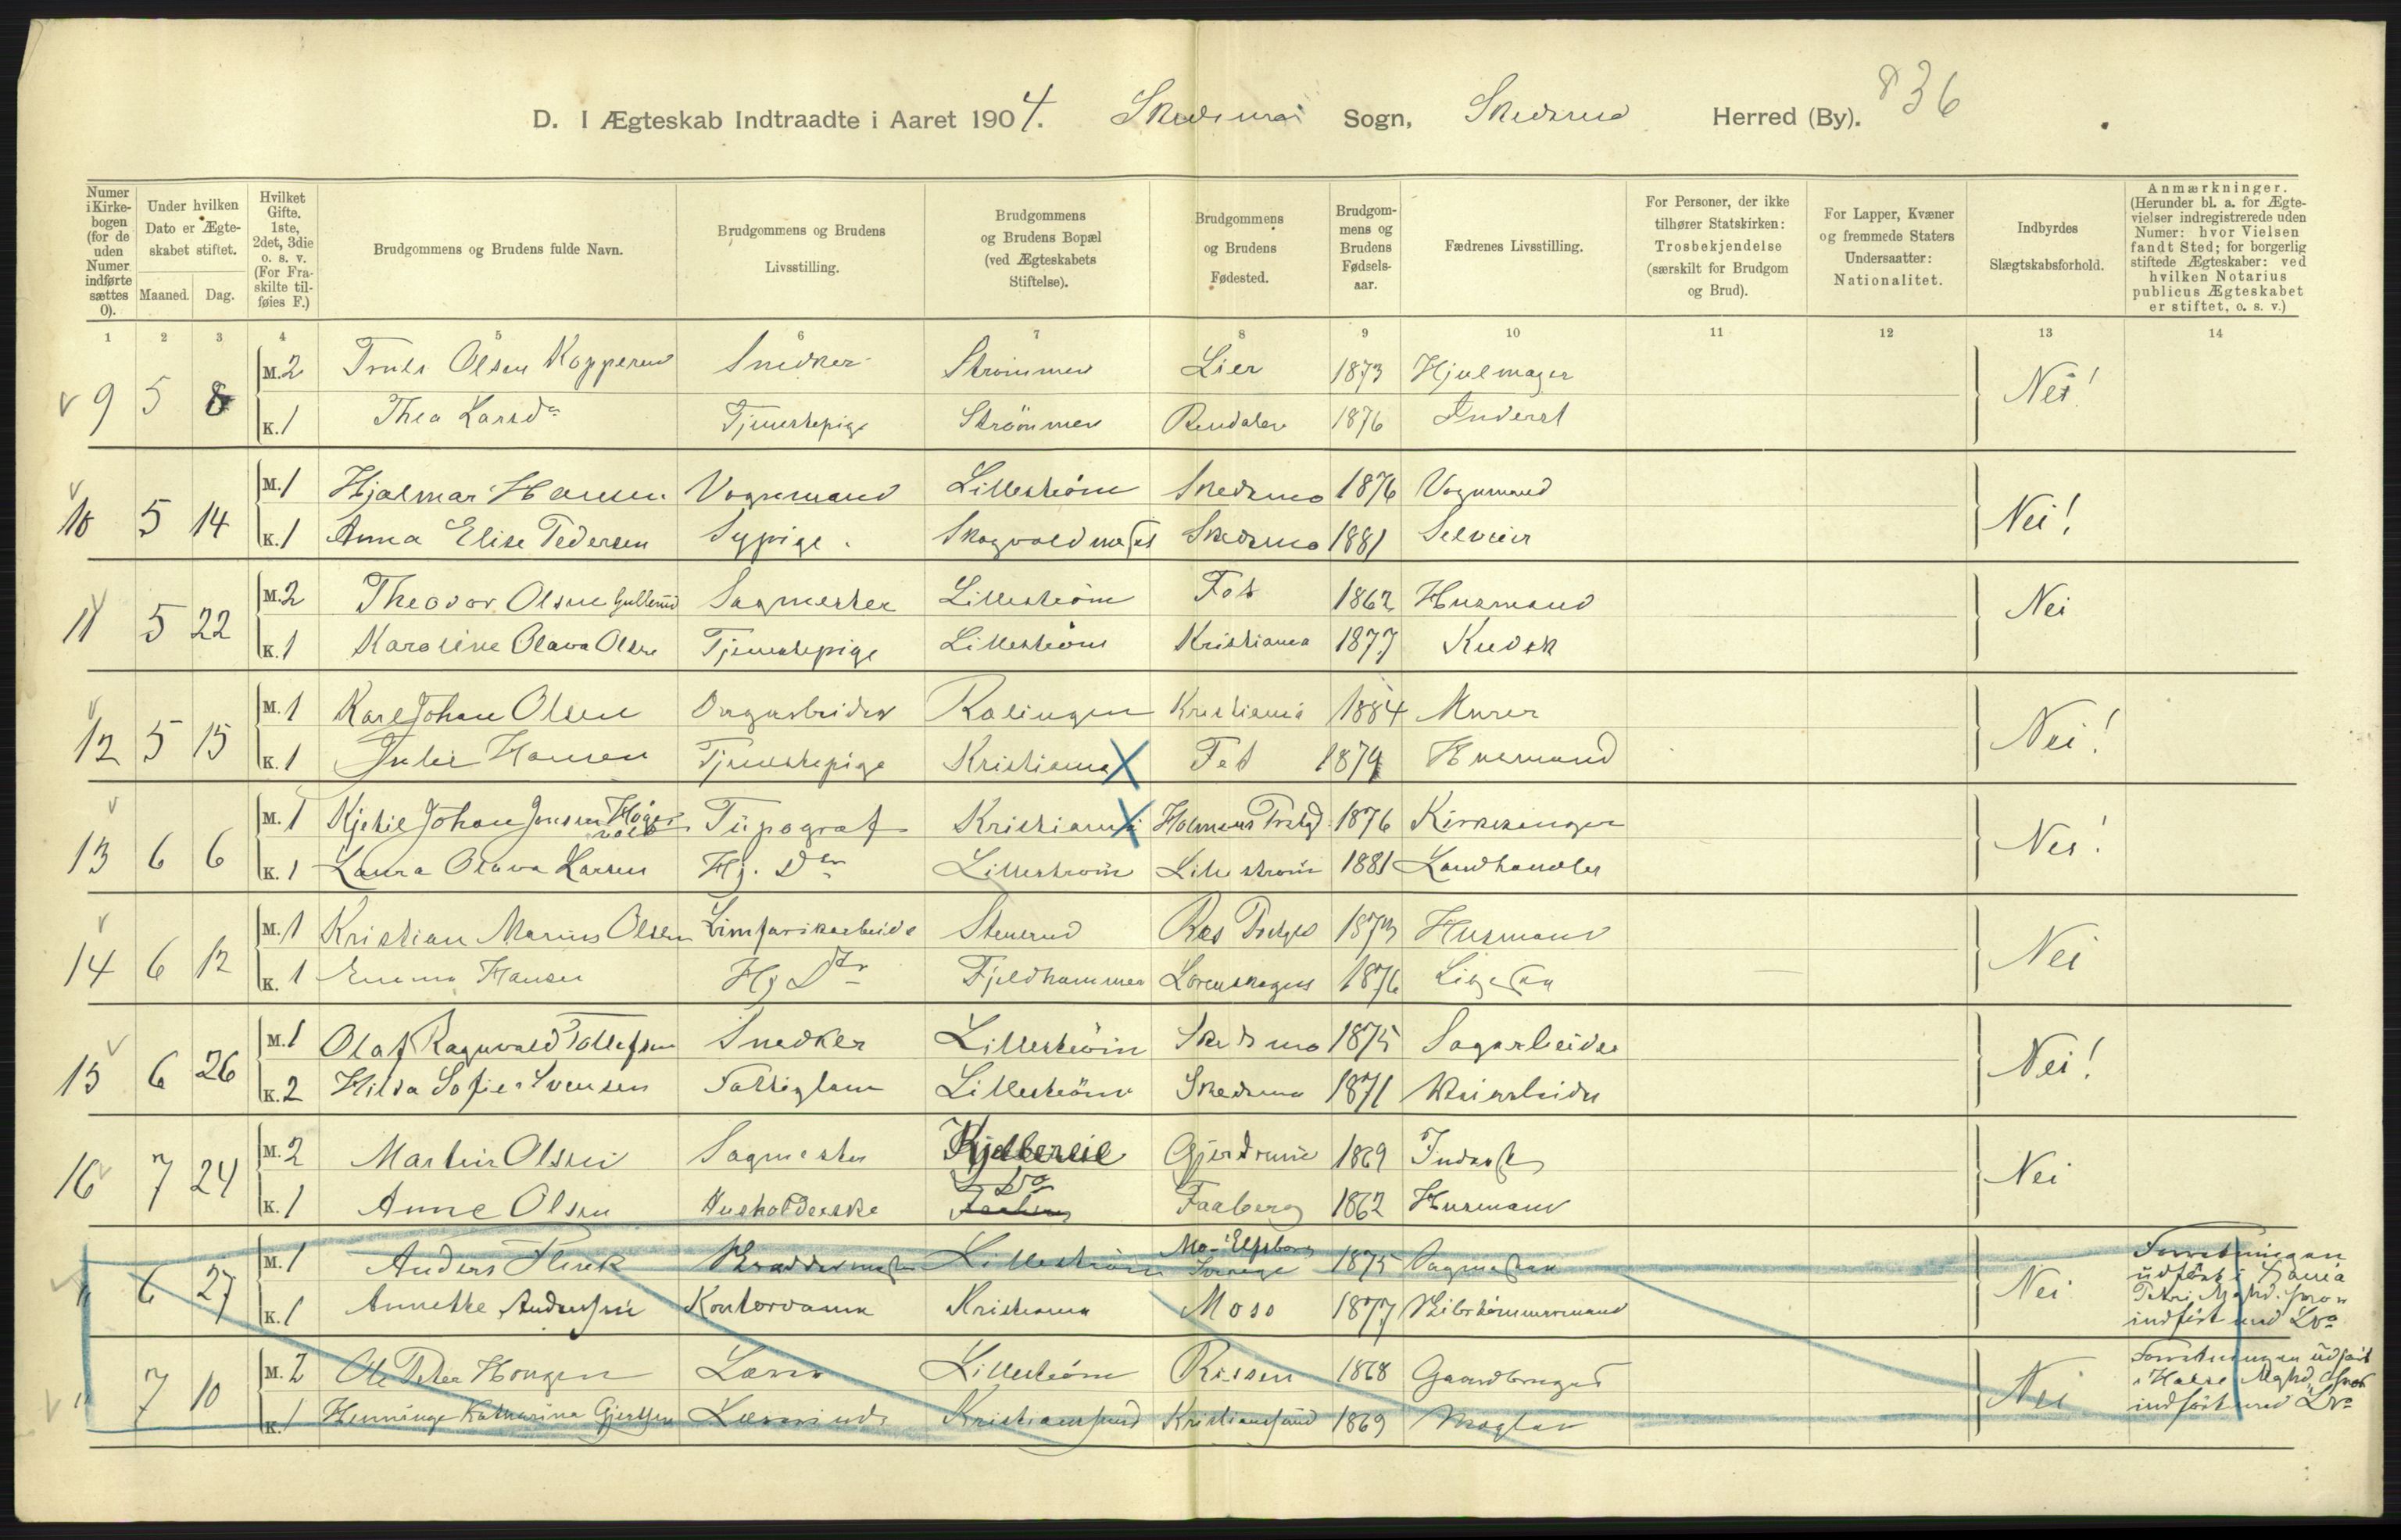 836
D. I Ægteskab Indtraadte i Aaret 1904. Skedsmo Sogn, Skedsmo Herred (By).
Numer i Kirke-bogen (for de uden Numer indførte sættes 0).
Under hvilken Dato er Ægte-skabet stiftet.
Maaned. Dag.
Hvilket Gifte. 1ste, 2det, 3die o. s. v. (For Fra-skilte til-føies F.)
Brudgommens og Brudens fulde Navn.
Brudgommens og Brudens Livsstilling.
Brudgommens og Brudens Bopæl (ved Ægteskabets Stiftelse).
Brudgommens og Brudens Fødested.
Brudgom-mens og Brudens Fødsels-aar.
Fædrenes Livsstilling.
For Personer, der ikke tilhører Statskirken: Trosbekjendelse (særskilt for Brudgom og Brud).
For Lapper, Kvæner og fremmede Staters Undersaatter: Nationalitet.
Indbyrdes Slægtskabsforhold.
Anmærkninger. (Herunder bl. a. for Ægte-vielser indregistrerede uden Numer: hvor Vielsen fandt Sted; for borgerlig stiftede Ægteskaber: ved hvilken Notarius publicus Ægteskabet er stiftet, o. s. v.)
1 2 3 4 5 6 7 8 9 10 11 12 13 14
9 5 8 M. 2 Truls Olsen Kopperud Snedker Strømmen Lier 1873 Hjulmager Nei!
K. 1 Thea Larsdr Tjenestepige Strömmen Rendalen 1876 Inderst
10 5 14 M. 1 Hjalmar Hansen Vognmand Lilleström Skedsmo 1876 Vognmand Nei!
K. 1 Anna Elise Pedersen Sypige. Skedsmo 1881 Selveier
11 5 22 M. 2 Theodor Olsen Gullerud Sagmester Lilleström Fet 1862 Husmand Nei
K. 1 Karoline Olava Olsen Tjenestepige Lilleström Kristiania 1877 Kudsk
12 5 15 M. 1 Karl Johan Olsen Rælingen Kristiania 1884 Murer Nei!
K. 1 Julie Hansen Tjenestepige Kristiania Fet 1879 Husmand
13 6 6 M. 1 Kjetil Johan Jonsen Typograf Kristiania Holmens Prstgj 1876 Kirkesanger Nei!
K. 1 Laura Olava Larsen Hj. Dtr Lilleström Lilleström 1881 Landhandler
14 6 12 M. 1 Kristian Marius Olsen Limfabrikarbeider Stenerud 1873 Husmand Nei
K. 1 Emma Hansen Hj Dtr Fjeldhammer Lørenskogen 1876
15 6 26 M. 1 Olaf Ragnvald Tollefsen Snedker Lilleström Skedsmo 1875 Sagarbeider Nei!
K. 2 Hilda Sofie Svensen Fattiglem Lilleström Skedsmo 1871 Veiarbeider
16 7 24 M. 2 Martin Olsen Sagmester Gjerdrum 1869 Inderst Nei
K. 1 Anne Olsen Husholderske Do Faaberg 1862 Husmand
" 6 27 M. 1 Anders Flink Lilleström Mo-Elfsborg Sverige 1875 Nei Forretningen udført i
K. 1 Annette Andersen Kontordame Kristiania Moss 1877 indført med Do
" 7 10 M. 2 Ole Peter Hongen Læge Lilleström Rissen 1868 Gaardbruger Nei Forretningen udført
K. 1 Henninge Katharina Gjertsen Lærerinde Kristianssund Kristianssund 1869 Mægler indført med Do